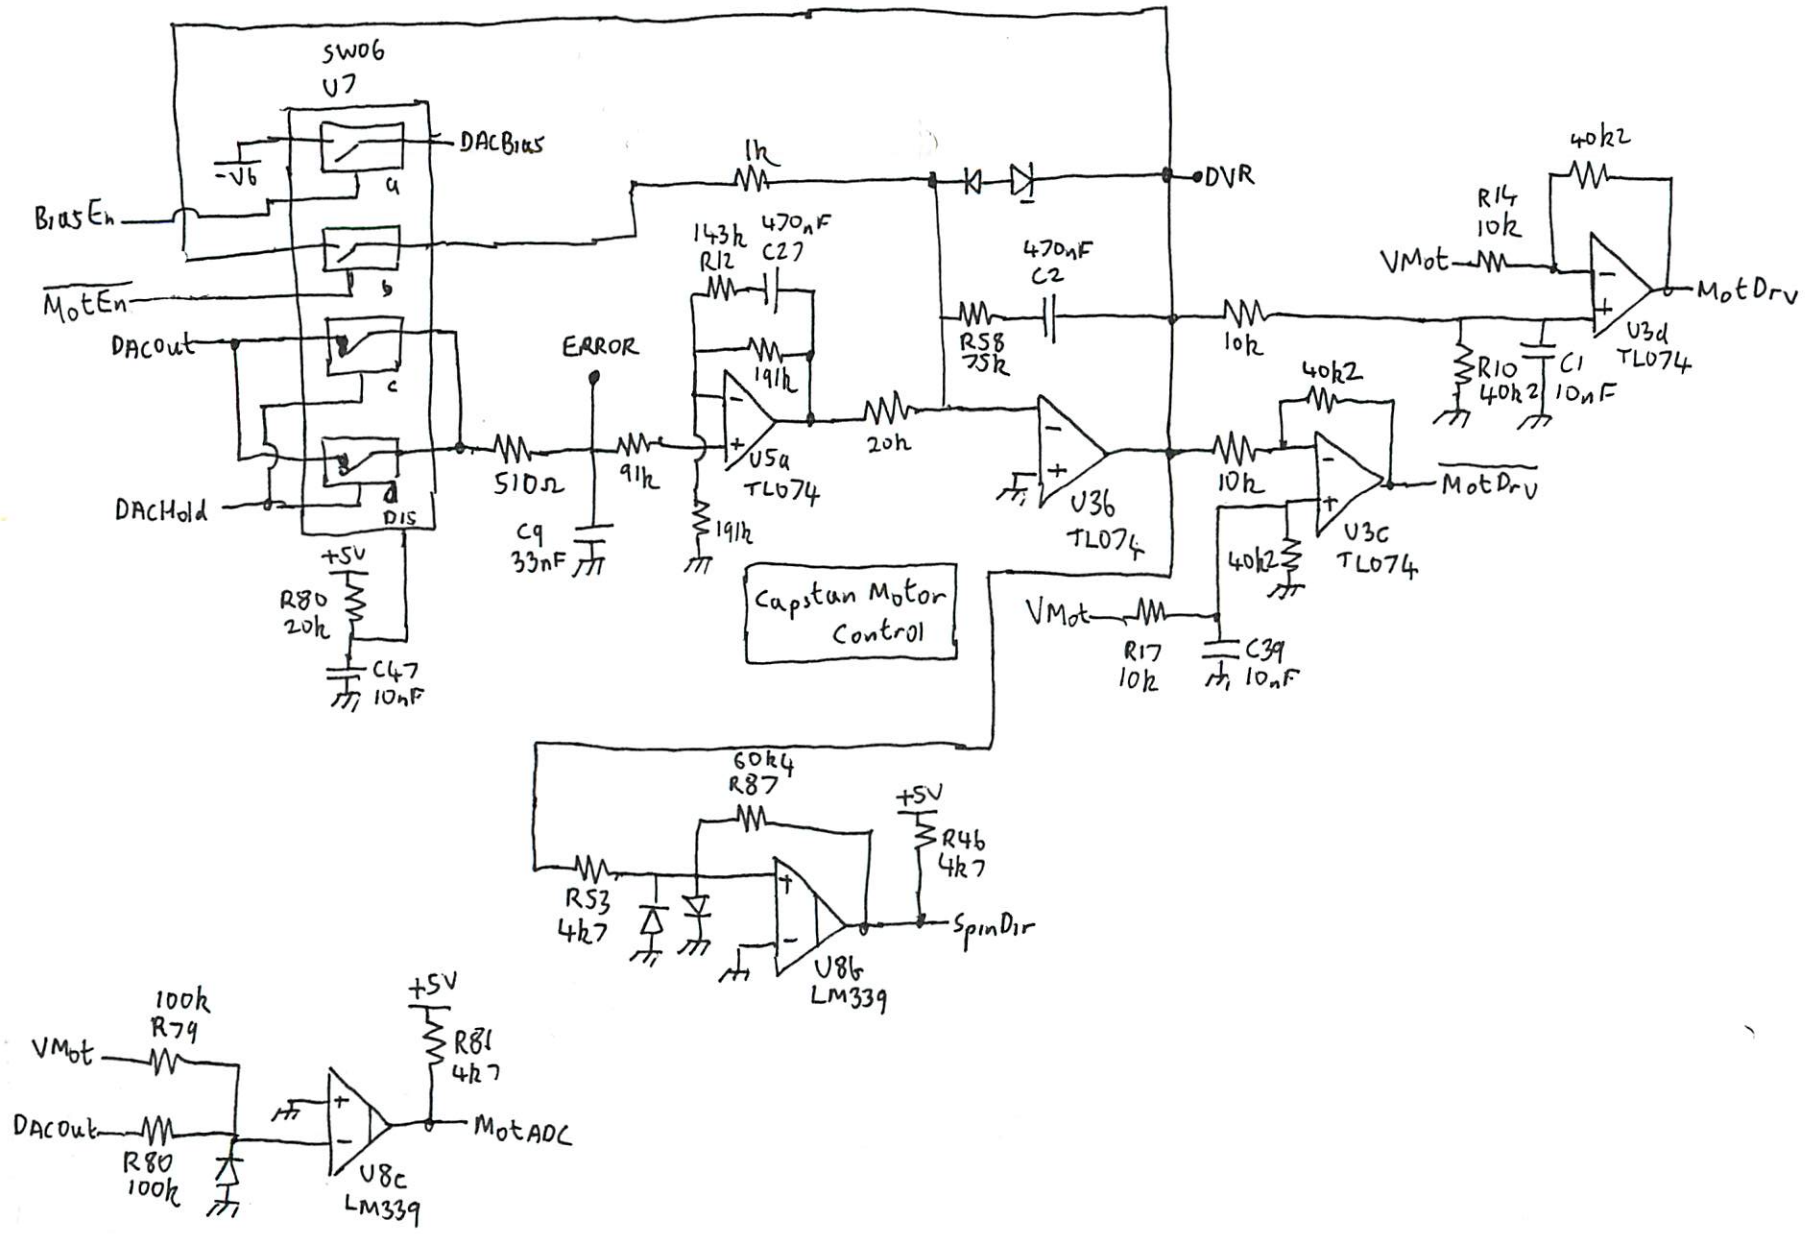 SW06
U7
-V6
DACBias
a
BiasEn
b
MotEn
DACOut
c
DACHold
d
DIS
+5V
R80
20k
C47
10nF
510Ω
ERROR
C9
33nF
91k
143k
R12
470nF
C27
191k
U5a
TL074
191k
1k
20k
DVR
470nF
C2
R58
75k
U3b
TL074
Capstan Motor
Control
10k
VMot
R14
10k
40k2
MotDrv
U3d
TL074
R10
40k2
C1
10nF
10k
40k2
MotDrv
U3c
TL074
40k2
VMot
R17
10k
C39
10nF
60k4
R87
R53
4k7
+5V
R46
4k7
SpinDir
U8b
LM339
100k
R79
VMot
DACOut
R80
100k
+5V
R81
4k7
MotADC
U8c
LM339